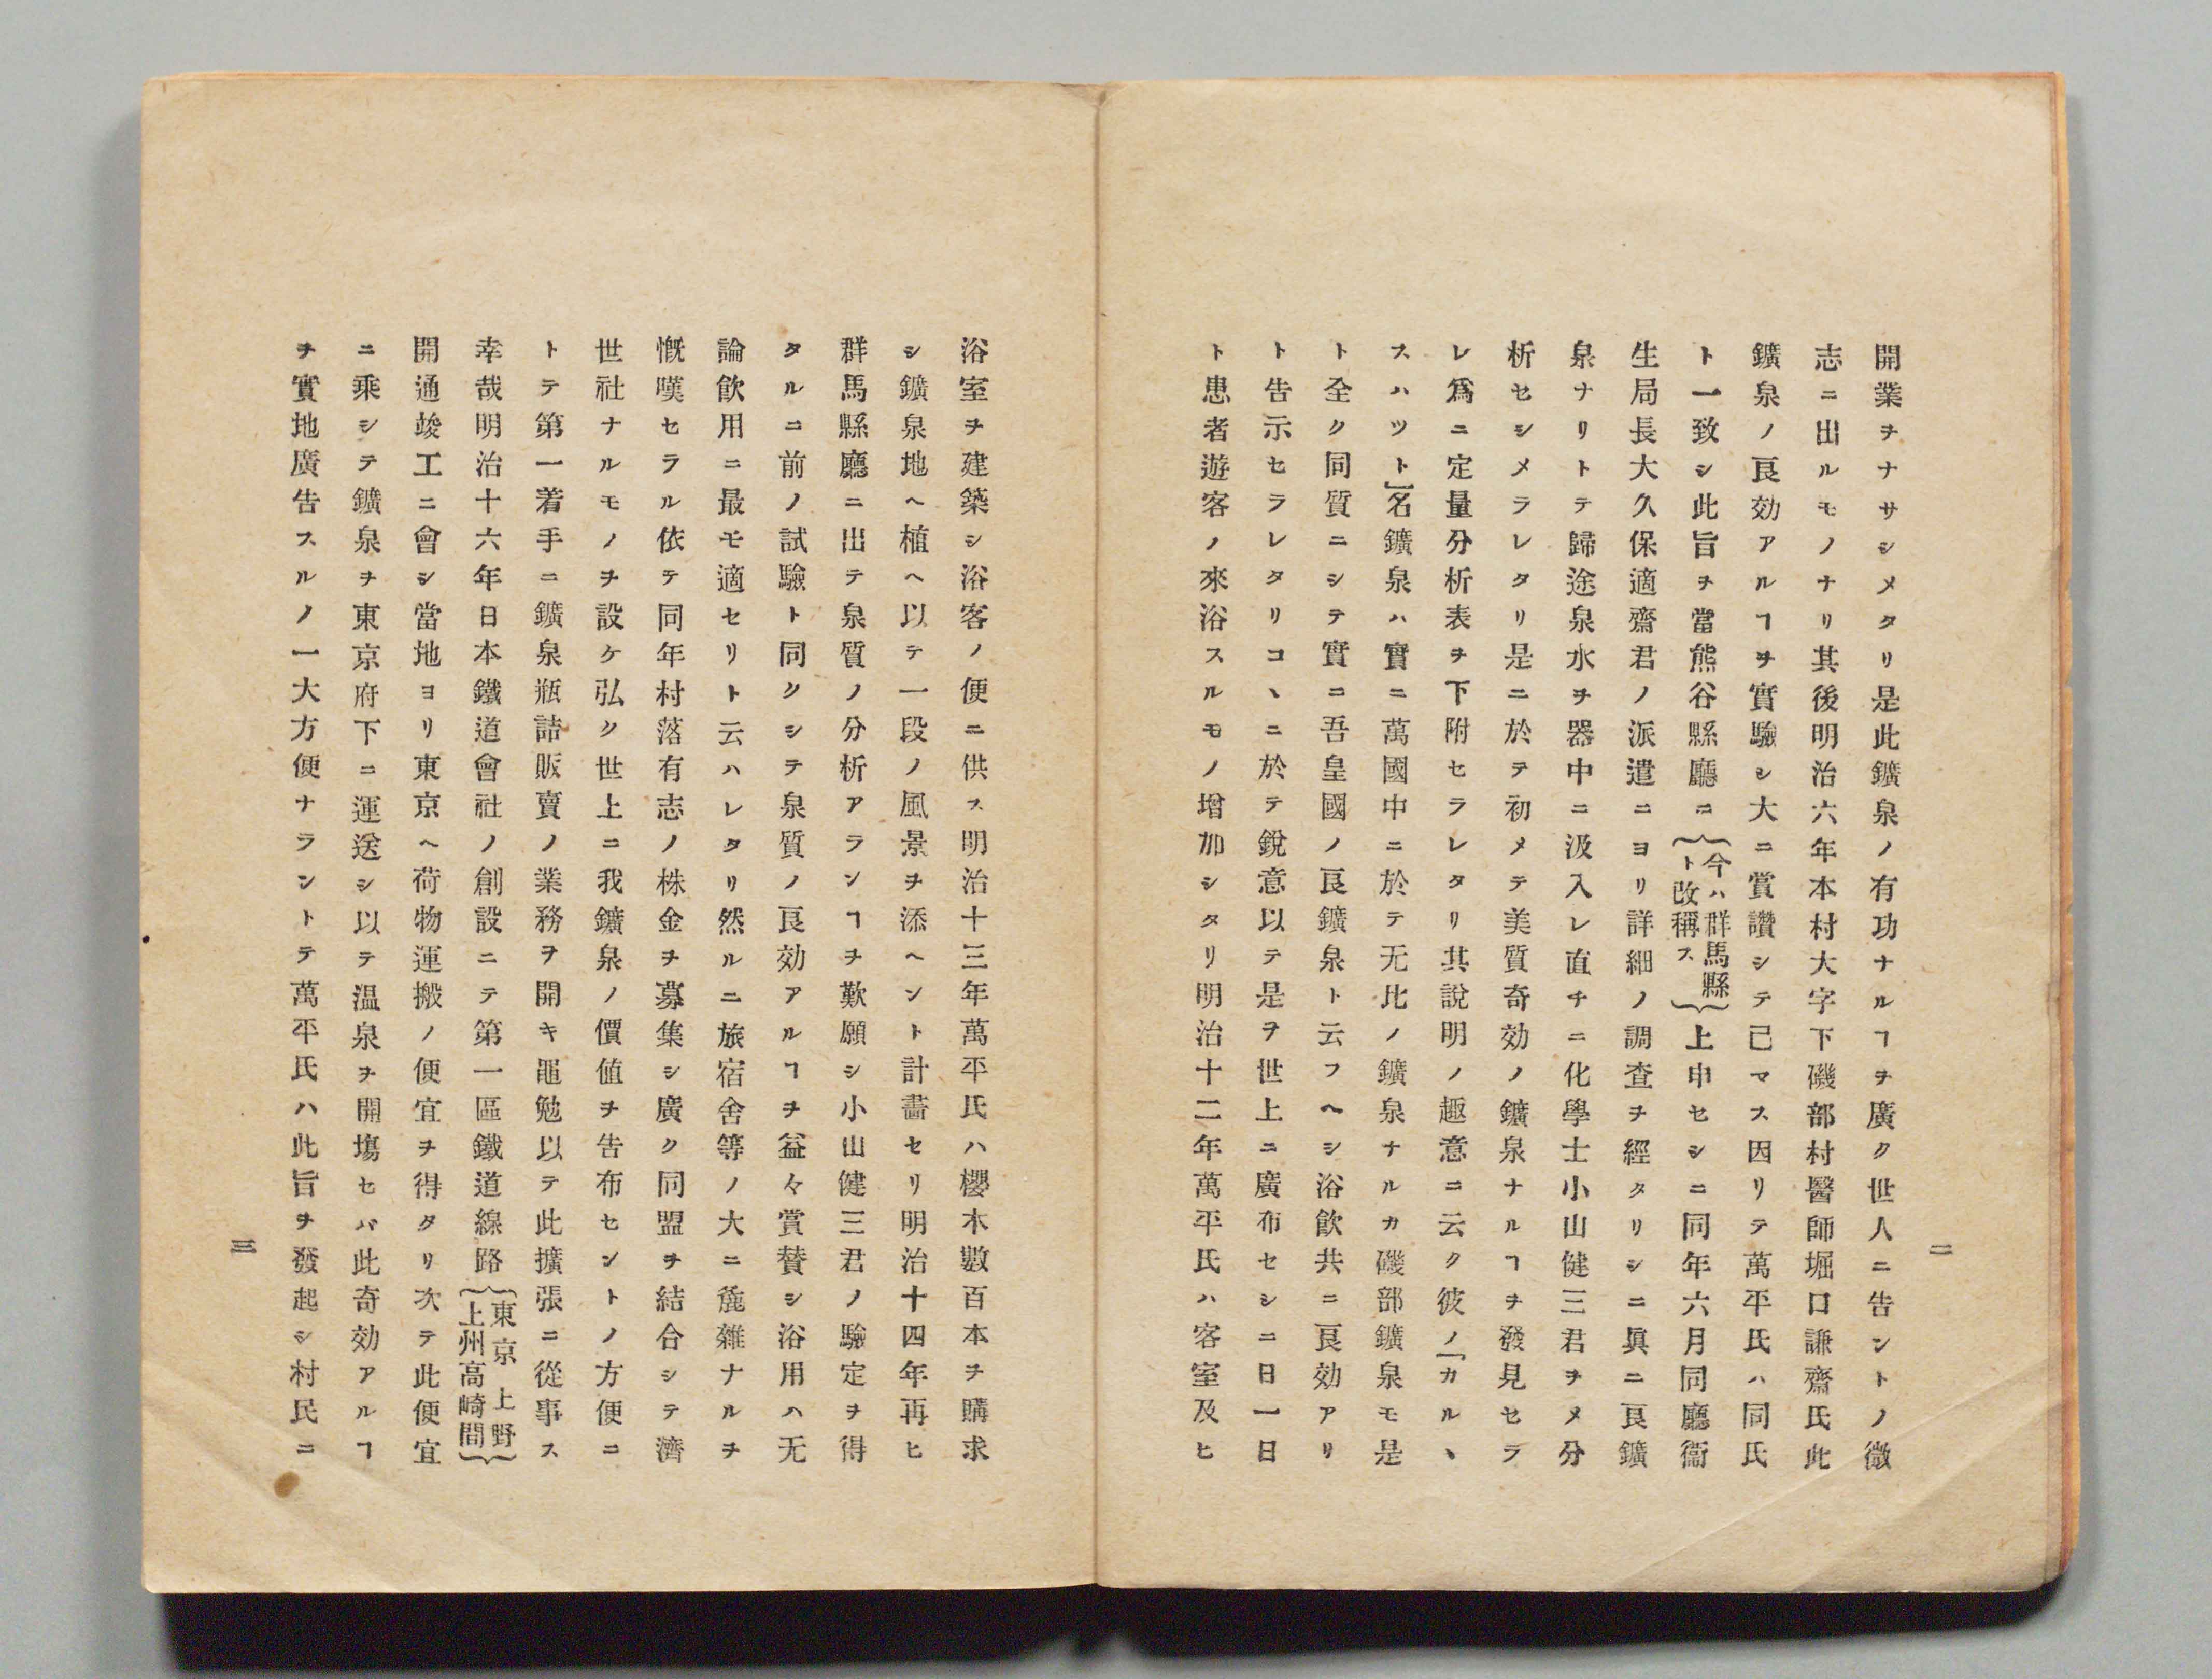 二
開業ヲナサシメタリ是此鑛泉ノ有功ナルヿヲ廣ク世人ニ告ントノ微
志ニ出ルモノナリ其後明治六年本村大字下磯部村醫師堀口謙齋氏此
鑛泉ノ良効アルヿヲ實驗シ大ニ賞讚シテ已マス因リテ萬平氏ハ同氏
ト一致シ此旨ヲ當熊谷縣廳ニ{今ハ群馬縣ト改稱ス}上申セシニ同年六月同廳衞
生局長大久保適齋君ノ派遣ニヨリ詳細ノ調査ヲ經タリシニ眞ニ良鑛
泉ナリトテ歸途泉水ヲ器中ニ汲入レ直チニ化學士小山健三君ヲメ分
析セシメラレタリ是ニ於テ初メテ美質奇効ノ鑛泉ナルヿヲ發見セラ
レ爲ニ定量分析表ヲ下附セラレタリ其說明ノ趣意ニ云ク彼ノ「カルヽ
スハツト」名鑛泉ハ實ニ萬國中ニ於テ无比ノ鑛泉ナルカ磯部鑛泉モ是
ト全ク同質ニシテ實ニ吾皇國ノ良鑛泉ト云フヘシ浴飮共ニ良効アリ
ト告示セラレタリコヽニ於テ銳意以テ是ヲ世上ニ廣布セシニ日一日
ト患者遊客ノ來浴スルモノ增加シタリ明治十二年萬平氏ハ客室及ヒ
浴室ヲ建築シ浴客ノ便ニ供ス明治十三年萬平氏ハ櫻木數百本ヲ購求
シ鑛泉地ヘ植ヘ以テ一段ノ風景ヲ添ヘント計畵セリ明治十四年再ヒ
群馬縣廳ニ出テ泉質ノ分析アランヿヲ歎願シ小山健三君ノ驗定ヲ得
タルニ前ノ試驗ト同クシテ泉質ノ良効アルヿヲ益々賞賛シ浴用ハ无
論飮用ニ最モ適セリト云ハレタリ然ルニ旅宿舍等ノ大ニ麁雜ナルヲ
慨嘆セラル依テ同年村落有志ノ株金ヲ募集シ廣ク同盟ヲ結合シテ濟
世社ナルモノヲ設ケ弘ク世上ニ我鑛泉ノ價値ヲ告布セントノ方便ニ
トテ第一着手ニ鑛泉瓶詰販賣ノ業務ヲ開キ黽勉以テ此擴張ニ從事ス
幸哉明治十六年日本鐵道會社ノ創設ニテ第一區鐵道線路{東京上野上州高崎間}
開通竣工ニ會シ當地ヨリ東京ヘ荷物運搬ノ便宜ヲ得タリ次テ此便宜
ニ乘シテ鑛泉ヲ東京府下ニ運送シ以テ温泉ヲ開塲セバ此奇効アルヿ
ヲ實地廣告スルノ一大方便ナラントテ萬平氏ハ此旨ヲ發起シ村民ニ
三